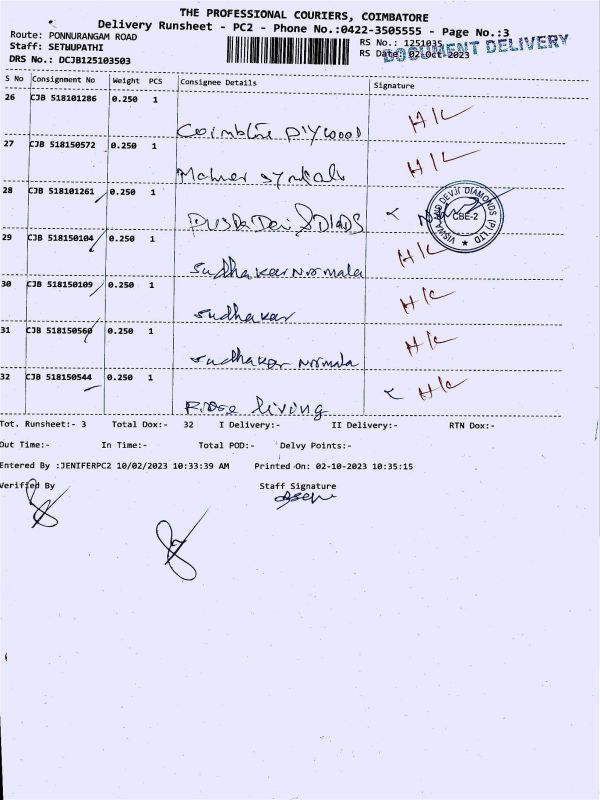 THE PROFESSIONAL COURIERS, COIMBATORE
Delivery Runsheet - PC2 - Phone No.:0422-3505555 - Page No.:3
Route: PONNURANGAM ROAD
Staff: SETWUPATHI
DRS No.: DCJB125103503
RS No.: 1251035
RS Date: 02-Oct-2023
DOCUMENT DELIVERY
S No Consignment No Weight PCS Consignee Details Signature
26 CJB 518101286 0.250 1 H/C
27 CJB 518150572 0.250 1 H/C
28 CJB 518101261 0.250 1
DEVJI DIAMONDS (P) LTD CBE-2
29 CJB 518150104 0.250 1 Sudhakar Nirmala H/C
30 CJB 518150109 0.250 1 Sudhakar H/C
31 CJB 518150560 0.250 1 Sudhakar Nirmala H/C
32 CJB 518150544 0.250 1 living H/C
Tot. Runsheet:- 3 Total Dox:- 32 I Delivery:- II Delivery:- RTN Dox:-
Out Time:- In Time:- Total POD:- Delvy Points:-
Entered By :JENIFERPC2 10/02/2023 10:33:39 AM Printed On: 02-10-2023 10:35:15
Verified By Staff Signature